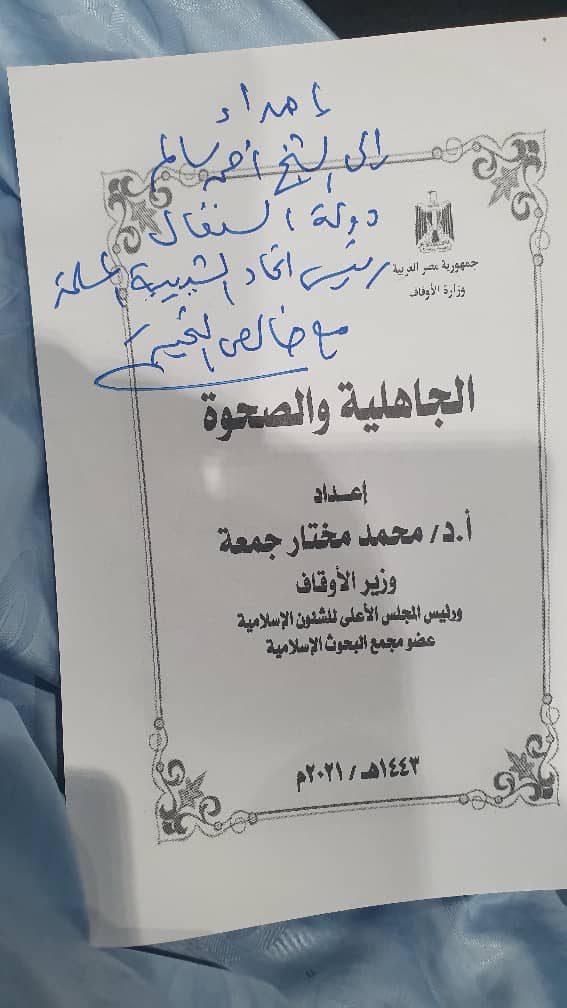 إهداء
إلى الشيخ أحمد سالم
دولة السنغال
رئيس اتحاد الشبيبة المسلمة
مع خالص التحية
جمهورية مصر العربية
وزارة الأوقاف
الجاهلية والصحوة
إعداد
أ.د/ محمد مختار جمعة
وزير الأوقاف
ورئيس المجلس الأعلى للشئون الإسلامية
عضو مجمع البحوث الإسلامية
١٤٤٣هـ / ٢٠٢١م